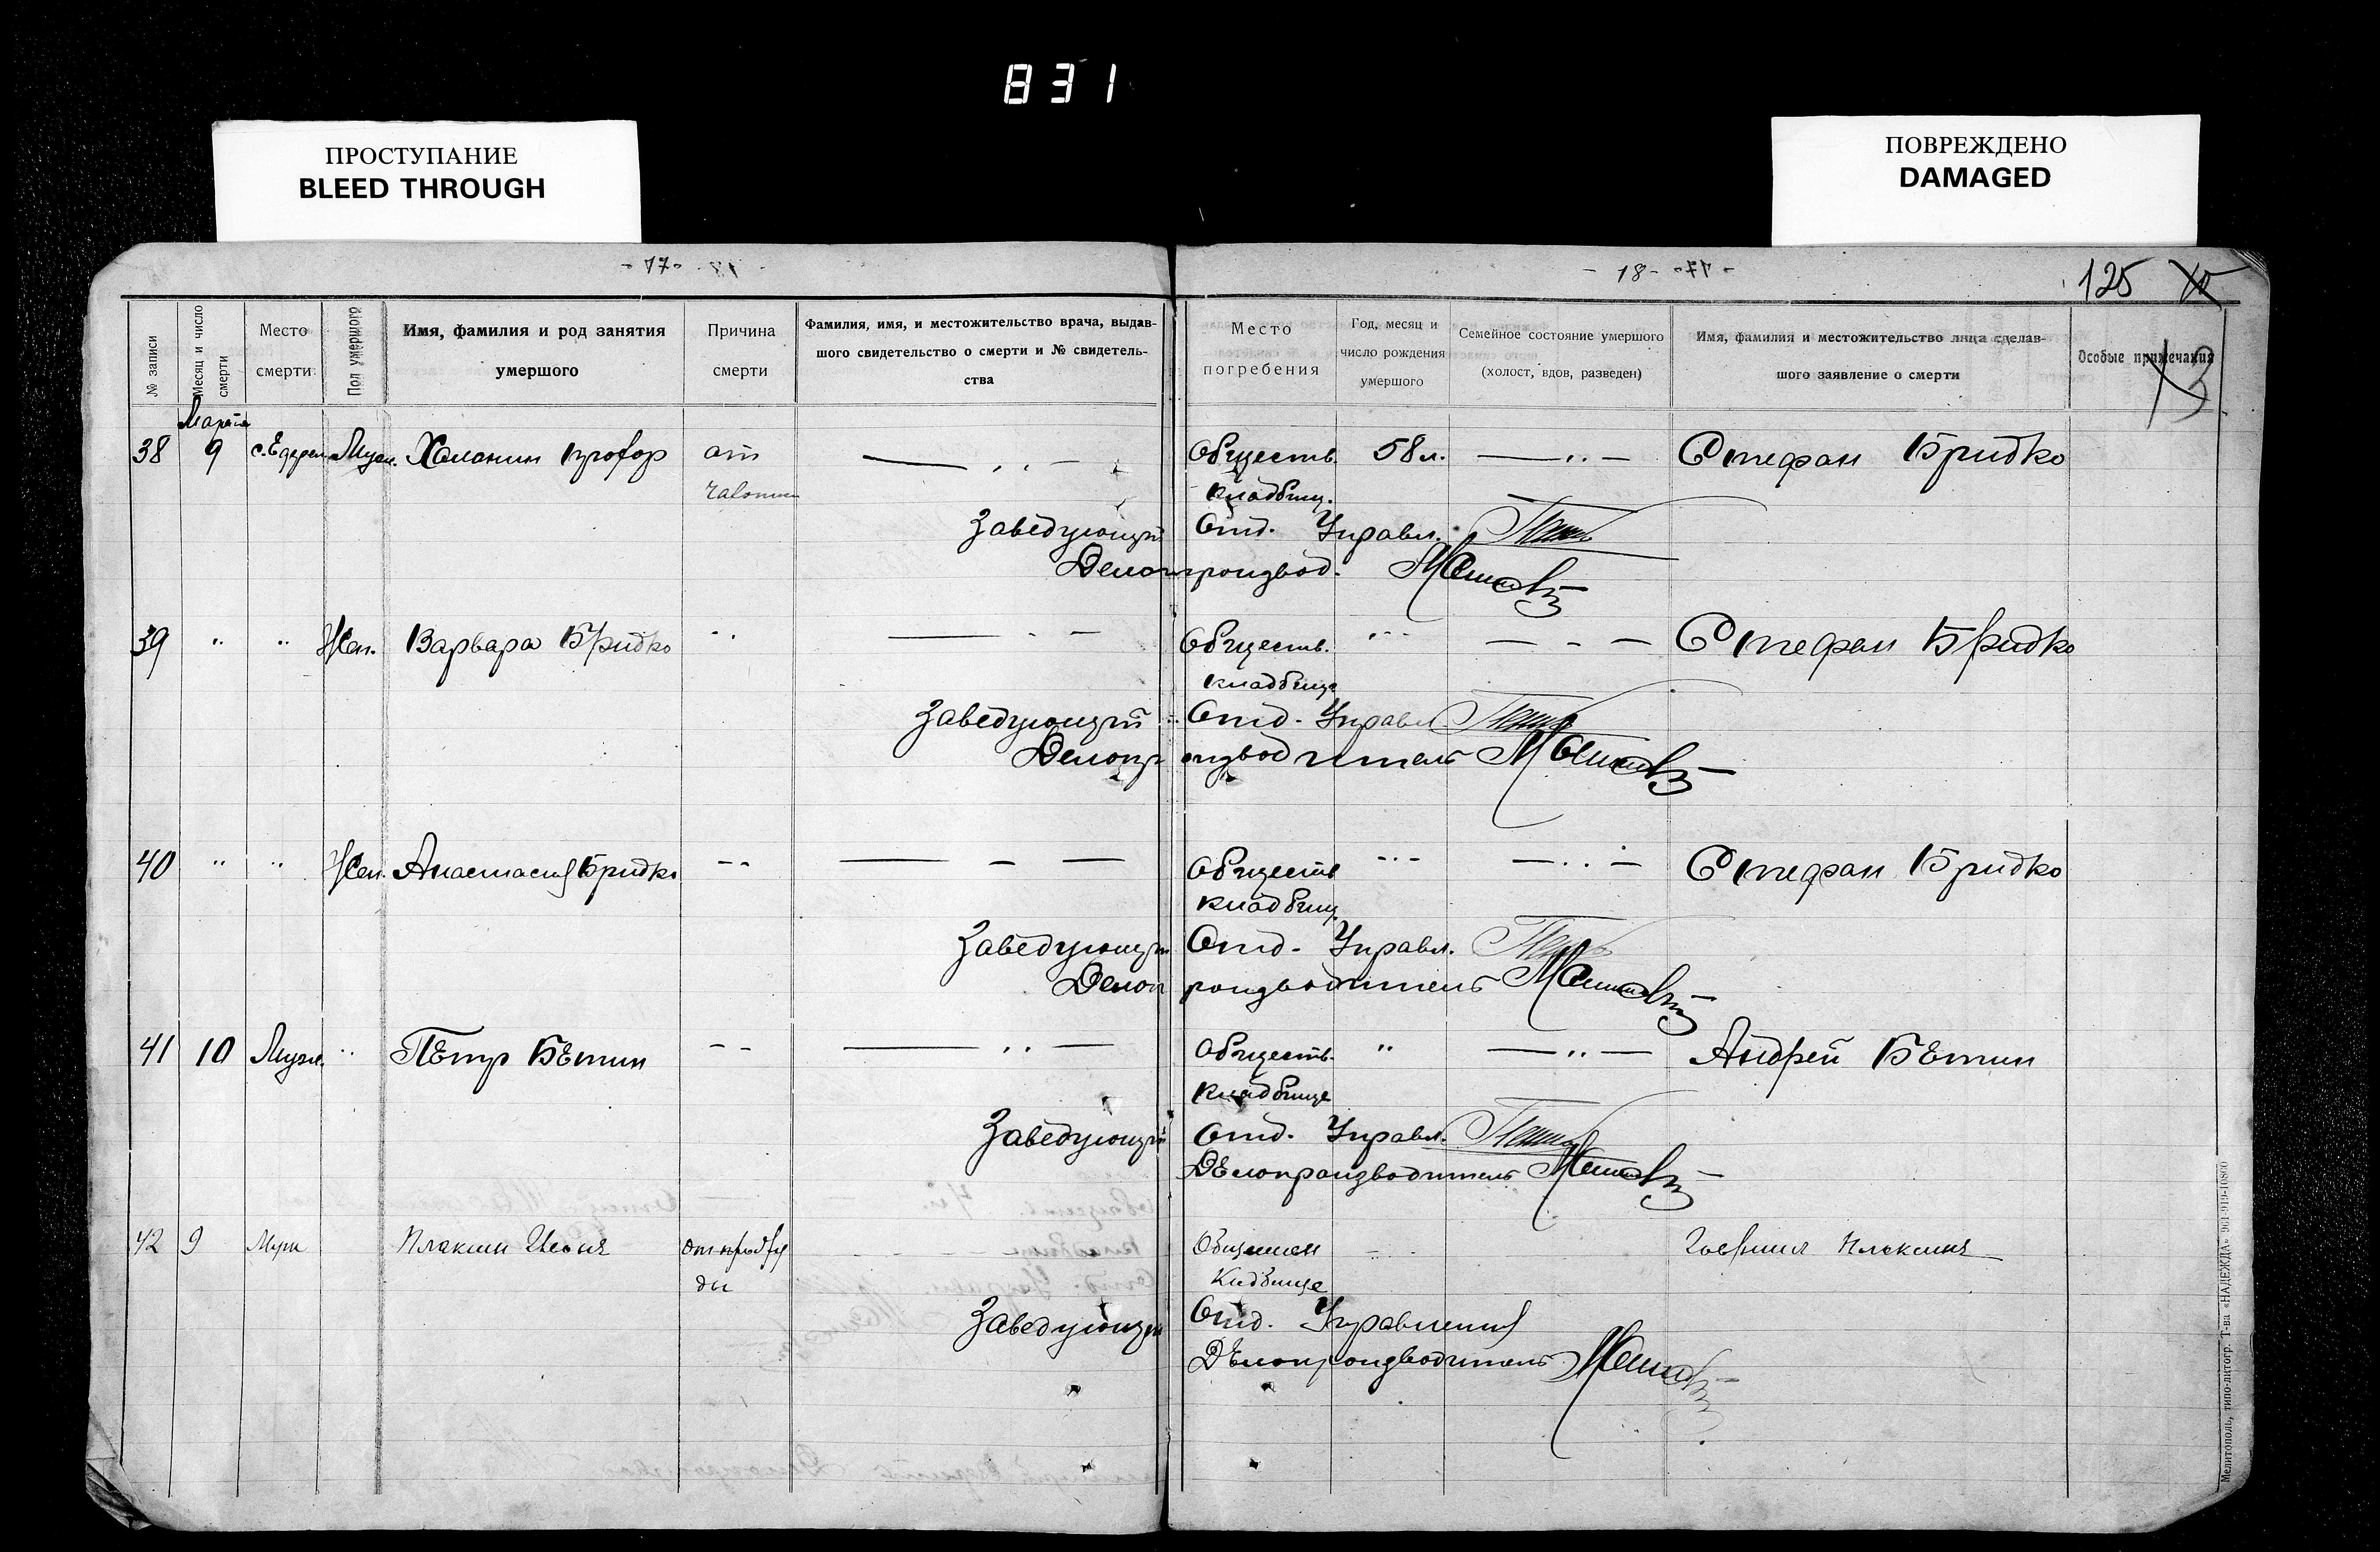 831
ПРОСТУПАНИЕ
BLEED THROUGH
ПОВРЕЖДЕНО
DAMAGED
- 17 -
- 18 -
125
13
№ записи
Месяц и число смерти
Место смерти
Пол умершого
Имя, фамилия и род занятия умершого
Причина смерти
Фамилия, имя, и местожительство врача, выдав-
шого свидетельство о смерти и № свидетель-
ства
Место погребения
Год, месяц и число рождения умершого
Семейное состояние умершого
(холост, вдов, разведен)
Имя, фамилия и местожительство лица сделав-
шого заявление о смерти
Особые примечания
Марта
38 9 Муж. от — „ — Обществ. 58 л. — „ — Стефан Бридко
кладбищ.
Заведующий Отд. Управл.
Делопроизвод.
39 „ „ Жен. Варвара Бридко „ — - — Обществ. „ — - — Стефан Бридко
кладбище
Заведующий Отд. Управл.
Делопроизводитель
40 „ „ Жен. Анастасия Бридко - - — - — Обществ „ — „ — Стефан Бридко
кладбищ
Заведующий Отд. Управл.
Делопроизводитель
41 10 Муж. „ Пётр Бётин - - — „ — Обществ. „ — „ — Андрей Бётин
кладбище
Заведующий Отд. Управл.
Делопроизводитель
42 9 Муж Плаксин Обществен
кладбище
Заведующий Отд. Управления
Делопроизводитель
Мелитополь, типо-литогр. Т-ва «НАДЕЖДА»